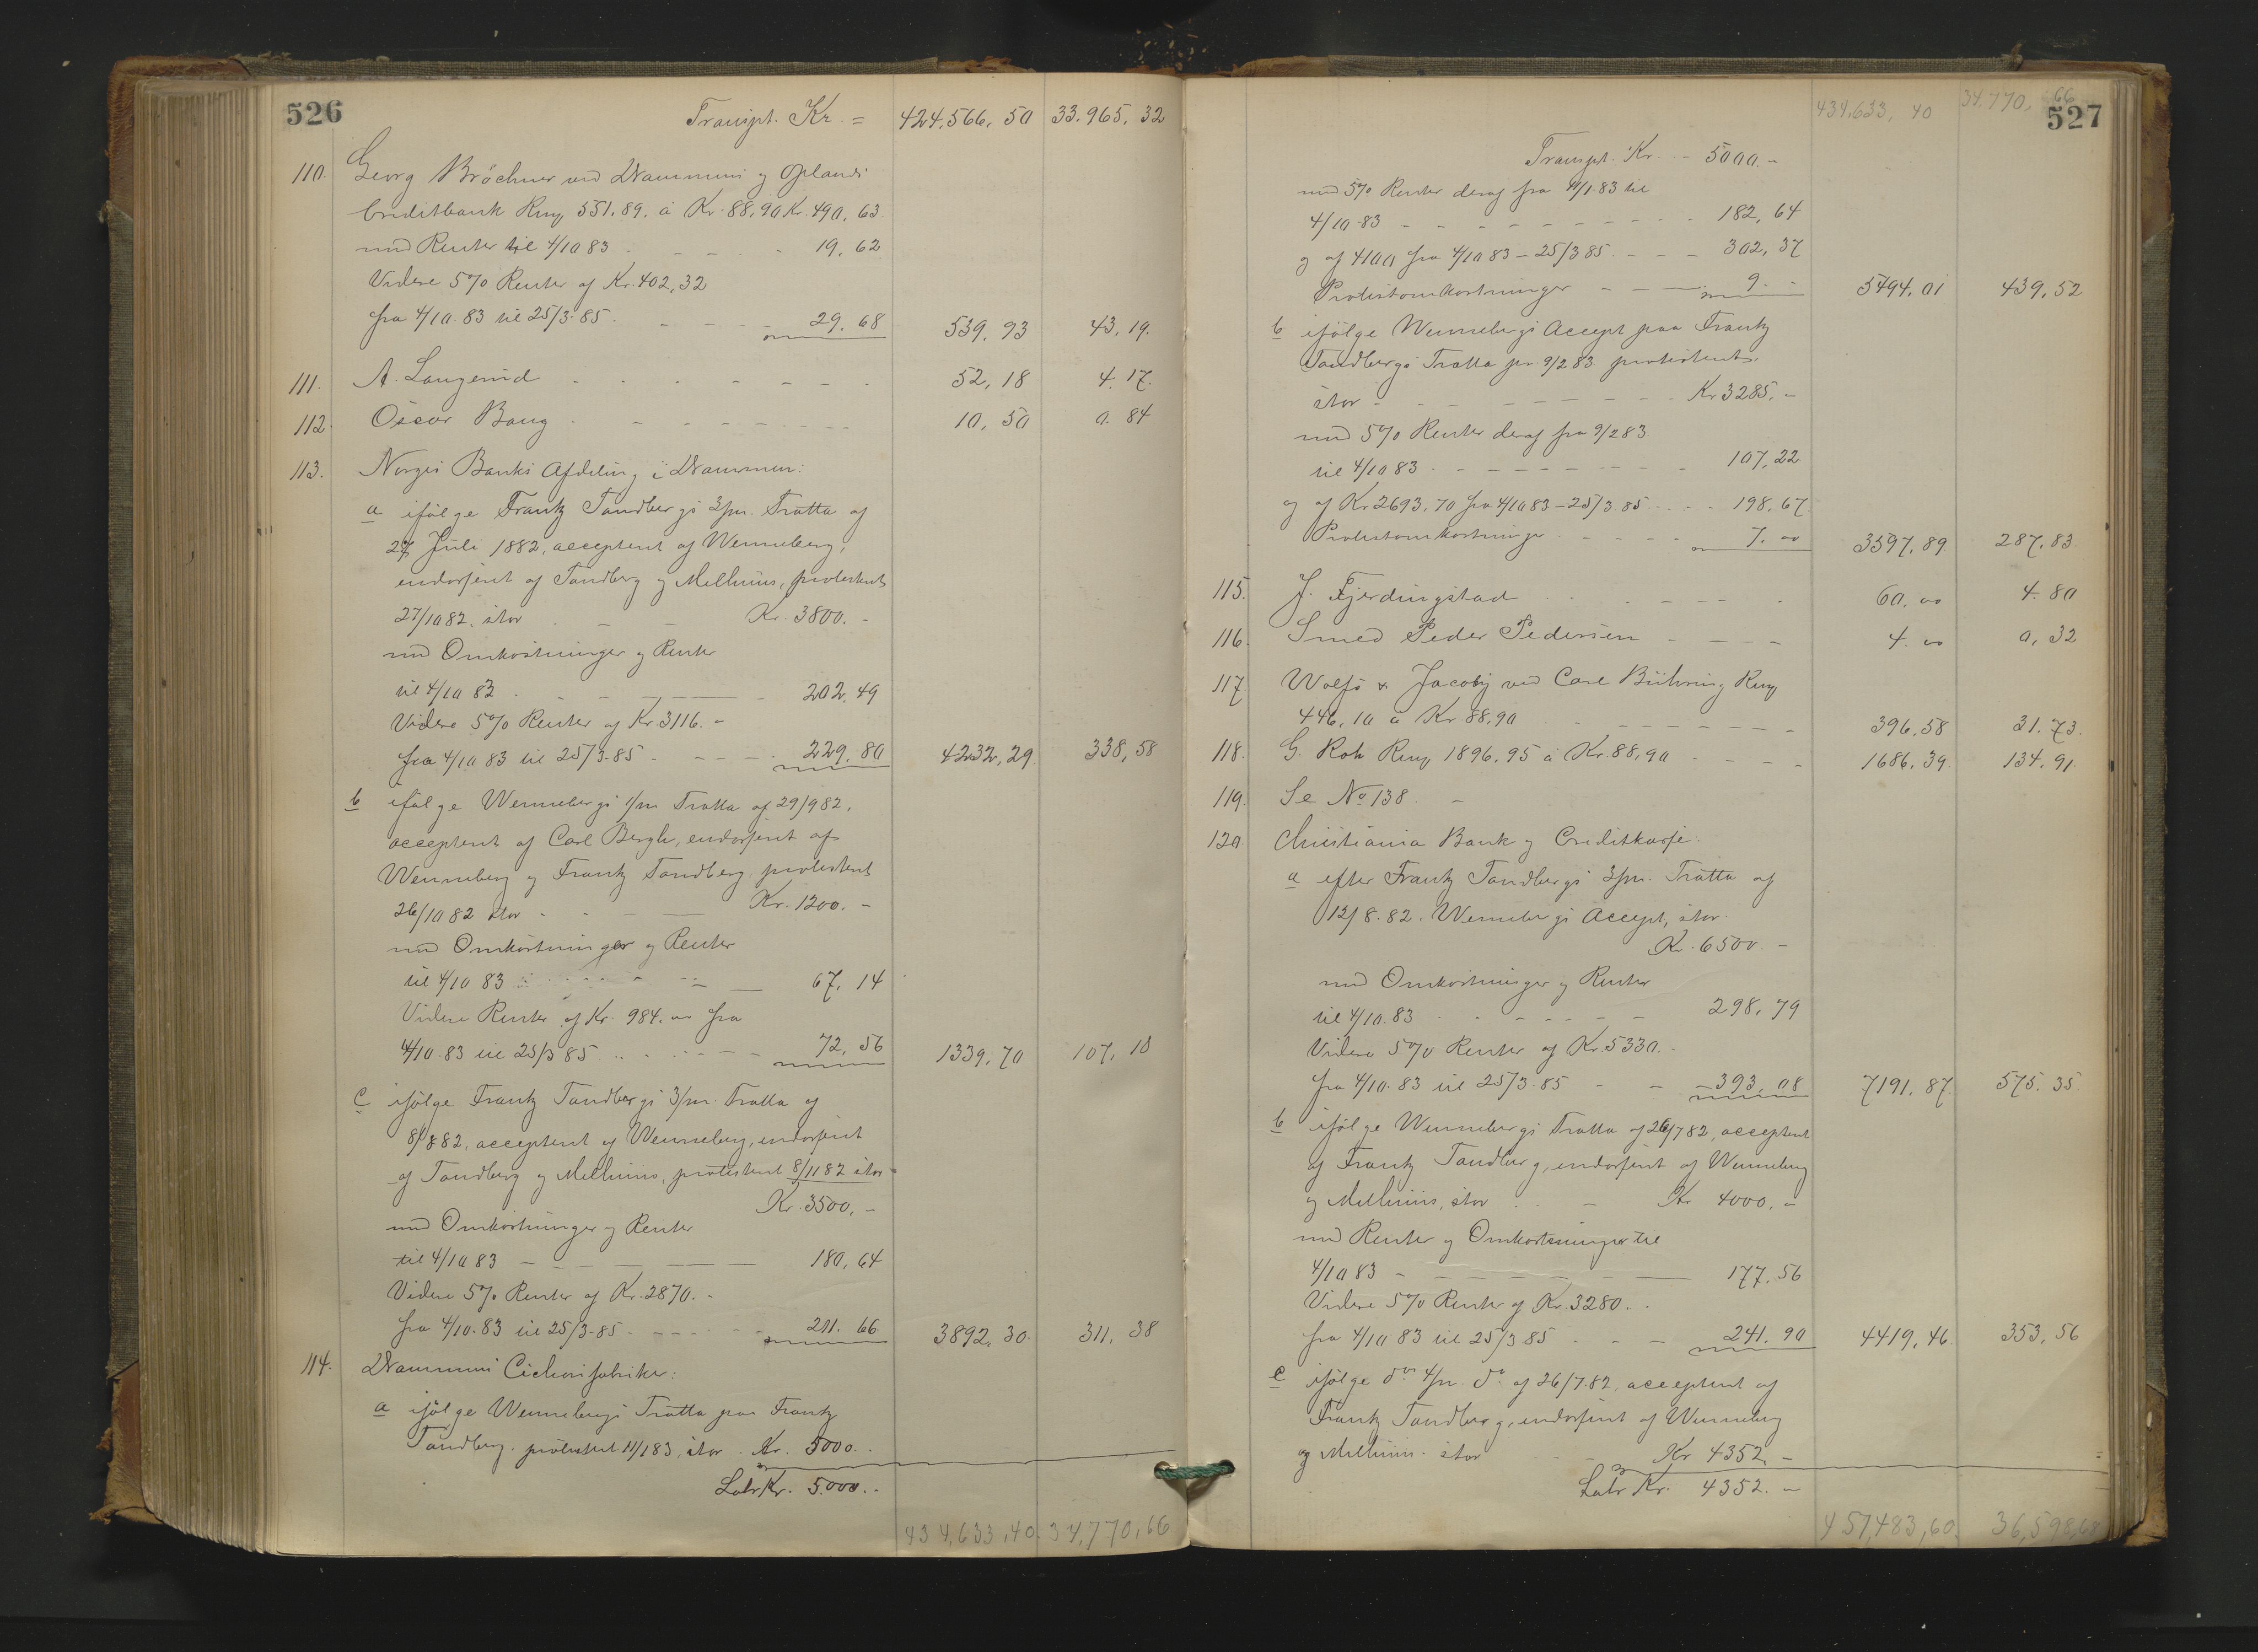 526
Transpt. Kr. = 424,566, 50 33,965, 32
110. Georg Bröchner ved Drammens og Oplands
Creditbank Rmg 551,89. á Kr. 88,90 Kr. 490, 63.
med Renter til 4/10 83 - - - - 19, 62
Videre 5% Renter af Kr. 402,32
fra 4/10. 83 til 25/3-85. - - - - 29. 68 539. 93 43, 19.
111. A. Langerud - - - - - - - 52, 18 4. 17.
112. Oscar Bang - - - - - - - 10, 50 0. 84
113. Norges Banks Afdeling i Drammen:
a ifølge Frantz Tandbergs 3/m. Tratta af
27 Juli 1882, acceptent af Wenneberg,
endosfent af Tandberg og Melhuus, protestent
27/10 82. stor - - - Kr. 3800. -
med Omkostninger og Renter
til 4/10 83 - - - - - 202, 49
Videre 5% Renter af Kr. 3116. -
fra 4/10 83 til 25/3-85 - - - - 229. 80 4232, 29. 338, 58
b ifølge Wennebergs 1/m Tratta af 29/9 82,
acceptent af Carl Bergh, endosfent af
Wenneberg og Frantz Tandberg, protestent
26/10 82 stor - - - - Kr. 1200. -
med Omkostninger og Renter
til 4/10 83 - - - - - 67, 14
Videre Renter af Kr. 984. 00 fra
4/10. 83 til 25/3 85 - - - - 72, 56 1339, 70 107, 18
c ifølge Frantz Tandbergs 3/m. Tratta af
8/8 82, acceptent af Wenneberg, endosfent
af Tandberg og Melhuus, protestent 8/11 82 stor
Kr. 3500, -
med Omkostninger og Renter
til 4/10 83 - - - - - 180, 64
Videre 5% Renter af Kr. 2870. -
fra 4/10. 83 til 25/3-85 - - - - 211. 66 3892. 30. 311, 38
114. Drammens Cichorifabriker:
a ifølge Wennebergs Tratta paa Frantz
Tandberg. protestent 11/1 83, stor . Kr. 5000. -
Latr Kr. 5.000. -
434,633,40. 34,770,66
434,633, 40 34,770, 66
527
Transpt. Kr. - 5000. -
med 5% Renter deraf fra 11/1. 83 til
4/10-83 - - - - - - - 182, 64
og af 4100 fra 4/10 83 - 25/3 85 - - - 302, 37
Protestomkostninger - - - - 9. - 5494. 01 439. 52
b ifølge Wennebergs Accept paa Frantz
Tandbergs Tratta pr. 9/2 83 protestent.
stor - - - - - - - Kr 3285, -
med 5% Renter deraf fra 9/2 83
til 4/10 83 - - - - - - - 107, 22
og af Kr 2693, 70 fra 4/10 83 - 25/3. 85 - - - 198, 67.
Protestomkostninger - - - - 7. 00 3597, 89 287, 83.
115. J. Fjerdingstad - - - - - 60. 00 4. 80
116. Smed Peder Pedersen - - - - 4. 00 0, 32
117. Wolfs & Jacoby ved Carl Bühring Rmg
446, 10 á Kr 88, 90 - - - - - - 396, 58 31. 73.
118. G. Roh Rmg 1896. 95 á Kr. 88, 90 - - - - 1686. 39 134. 91.
119. Se No 138. -
120 Christiania Bank og Creditkasse.
a efter Frantz Tandbergs 3/m. Tratta af
12/8. 82. Wennebergs Accept, stor
Kr. 6500. -
med Omkostninger og Renter
til 4/10. 83 - - - - - - 298, 79
Videre 5% Renter af Kr 5330. -
fra 4/10. 83 til 25/3. 85 - - - 393, 08 7191. 87. 575. 35.
b ifølge Wennebergs Tratta af 26/7 82, acceptent
af Frantz Tandberg, endosfent af Wenneberg
og Melhuus, stor - - - Kr 4000. -
med Renter og Omkostninger til
4/10 83 - - - - - - - 177. 56
Videre 5% Renter af Kr. 3280. -
fra 4/10 83 til 25/3 85 - - - 241. 90 4419, 46. 353, 56
c ifølge do 4/m. do af 26/7. 82, acceptent af
Frantz Tandberg, endosfent af Wenneberg
og Melhuus. stor - - - Kr 4352. -
Latr Kr. 4352. -
457,483,60. 36,598,68